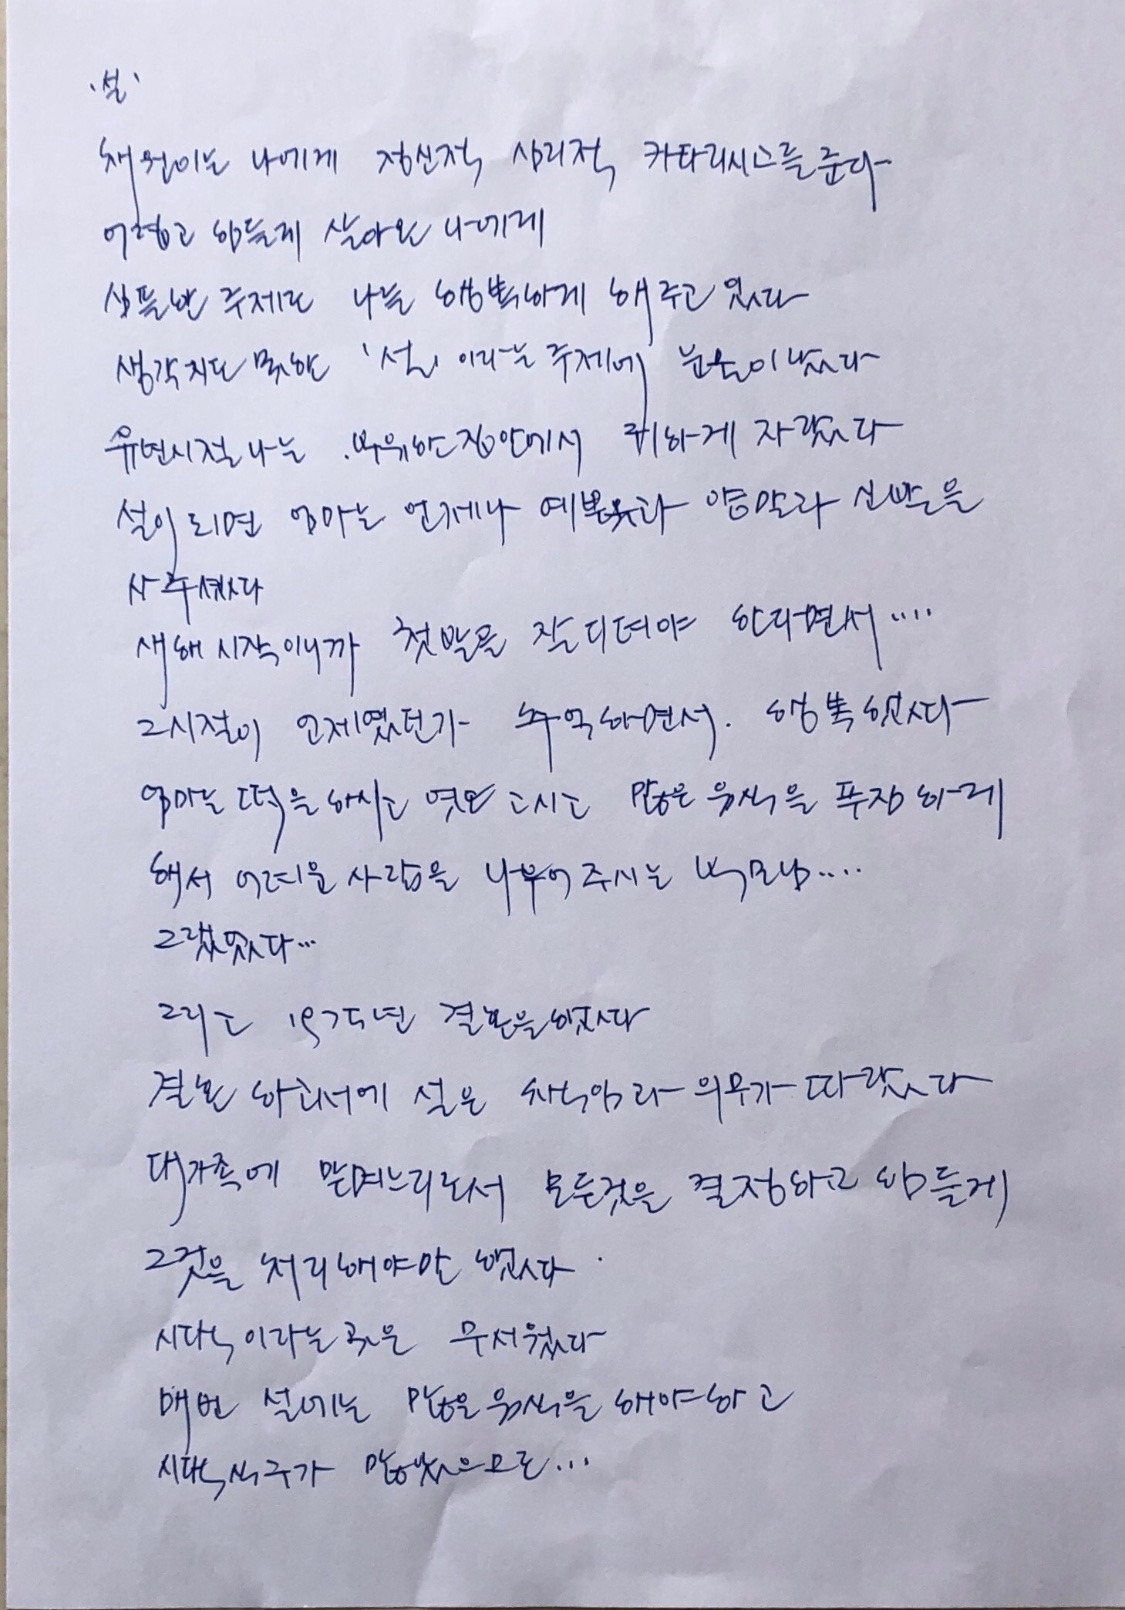 '설'
채원이는 나에게 정신적 심리적 카타리시스를 준다
어렵고 힘들게 살아온 나에게
심플한 주제로 나를 행복하게 해주고 있다
생각지도 못한 '설' 이라는 주제에 눈물이 났다
유년시절 나는 부유한 집안에서 귀하게 자랐다
설이 되면 엄마는 언제나 예쁜옷과 양말과 신발을
사주셨다
새해 시작이니까 첫발을 잘 디뎌야 한다면서....
그시절이 언제였던가 추억하면서. 행복했다
엄마는 떡을 하시고 엿도 고시고 많은 음식을 푸짐하게
해서 어려운 사람을 나누어주시는 부모님....
그랬었다...
그리고 1975년 결혼을 했다
결혼 하고서에 설은 책임과 의무가 따랐다
대가족에 맏며느리로서 모든것을 결정하고 힘들게
그것을 처리해야만 했다
시댁이라는 곳은 무서웠다
매번 설에는 많은 음식을 해야하고
시댁식구가 많았으므로...